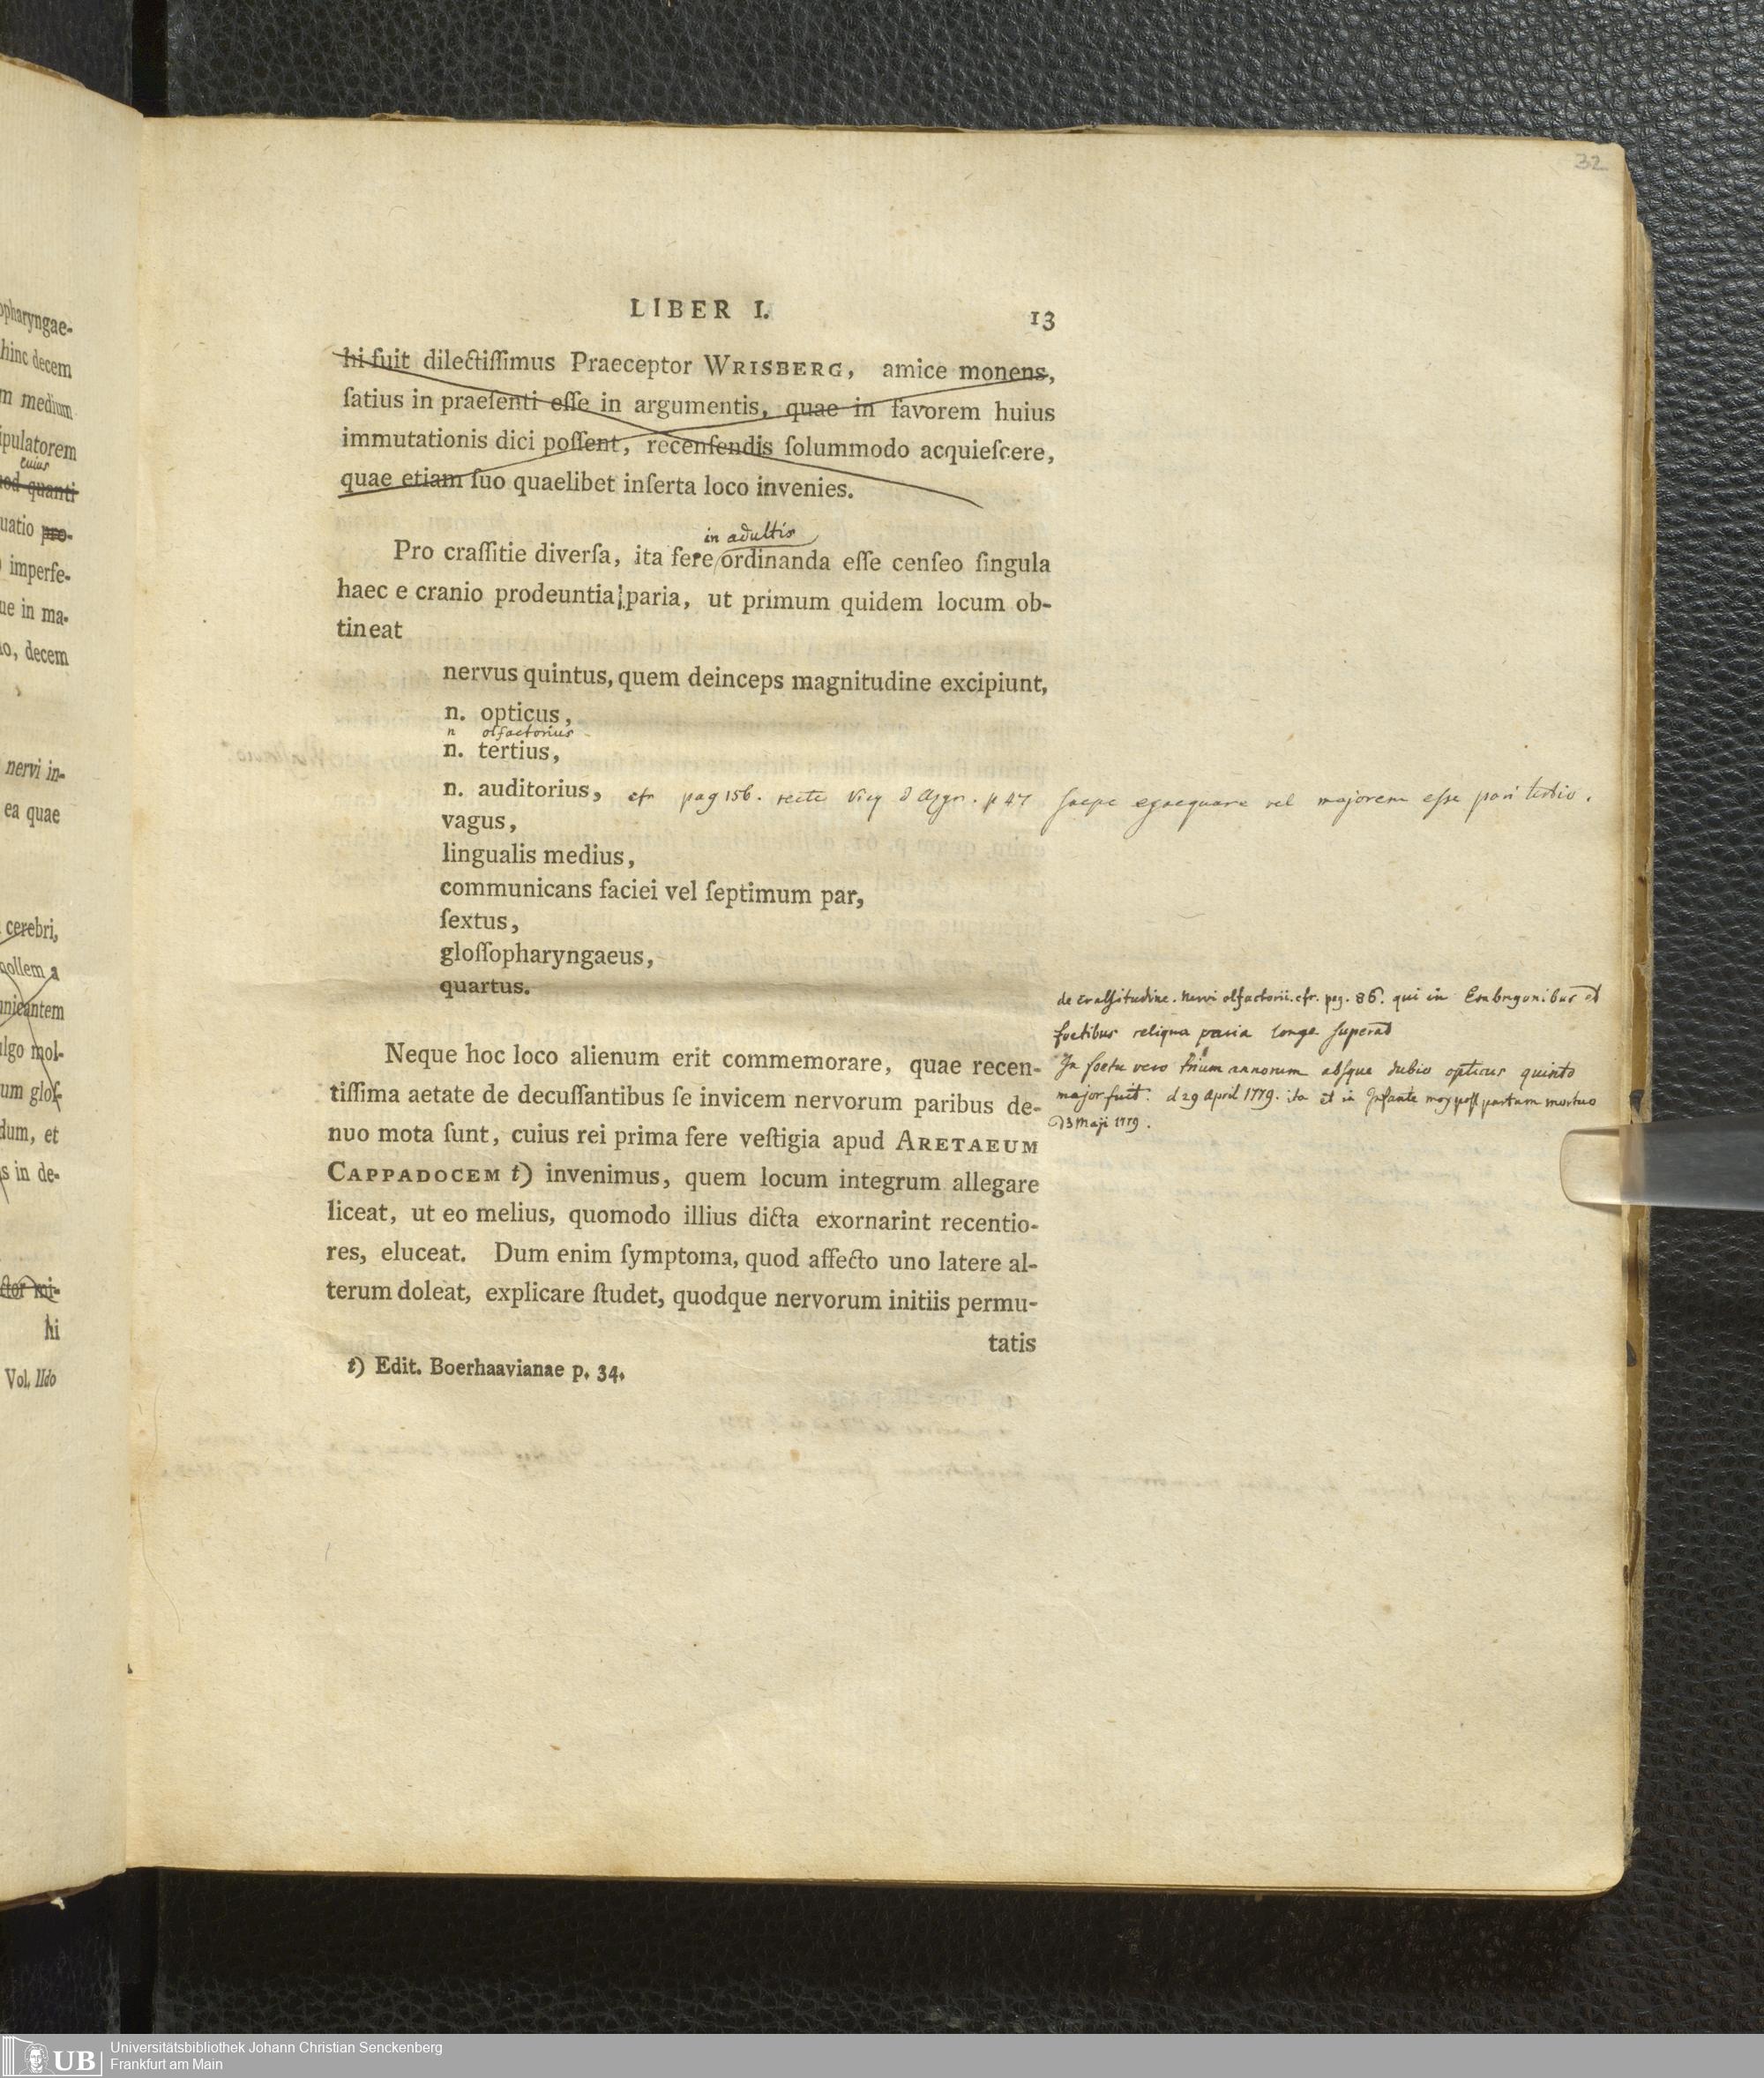 opharyngae-
hinc decem
m medium
ipulatorem
cuius
od quanti
uatio pro-
imperfe-
ue in ma-
io, decem
nervi in-
ea quae
cerebri,
nollem a
municantem
ulgo mol-
um glos-
dum, et
s in de-
ctor mi-
hi
Vol. IIdo
32
LIBER I.
13
hi fuit dilectiſſimus Praeceptor WRISBERG, amice monens,
ſatius in praeſenti eſſe in argumentis, quae in favorem huius
immutationis dici poſſent, recenſendis ſolummodo acquieſcere,
quae etiam ſuo quaelibet inſerta loco invenies.
in adultis
Pro craſſitie diverſa, ita fere ordinanda eſſe cenſeo ſingula
haec e cranio prodeuntia paria, ut primum quidem locum ob-
tineat
nervus quintus, quem deinceps magnitudine excipiunt,
n. opticus,
n olfactorius
n. tertius,
n. auditorius, cfr pag 156. recte Vicq d Azyr. p 47 saepe exaequare vel majorem eſse pari tertio.
vagus,
lingualis medius,
communicans faciei vel ſeptimum par,
ſextus,
gloſſopharyngaeus,
quartus.
de craſsitudine. nervi olfactorii. cfr. pag. 86. qui in Embryonibus et
foetibus reliqua paria longe superat
In foetu vero trium annorum absque dubio opticus quinto
major fuit. d 29 April 1779. ita et in Infante mox post partum mortuo
d 3 Maji 1779.
Neque hoc loco alienum erit commemorare, quae recen-
tiſſima aetate de decuſſantibus ſe invicem nervorum paribus de-
nuo mota ſunt, cuius rei prima fere veſtigia apud ARETAEUM
CAPPADOCEM t) invenimus, quem locum integrum allegare
liceat, ut eo melius, quomodo illius dicta exornarint recentio-
res, eluceat. Dum enim ſymptoma, quod affecto uno latere al-
terum doleat, explicare ſtudet, quodque nervorum initiis permu-
tatis
t) Edit. Boerhaavianae p. 34.
UB
Universitätsbibliothek Johann Christian Senckenberg
Frankfurt am Main